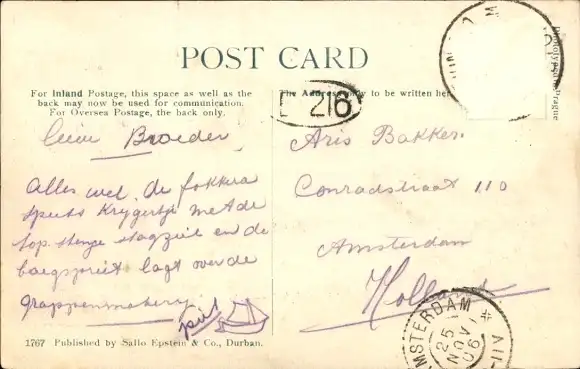 POST CARD
For Inland Postage, this space as well as the
back may now be used for communication.
For Oversea Postage, the back only.
The Address only to be written here
Phototyped in Prague
L 216
Broeder
Alles wel. de fokkera
met de
top stenge stagzeil en de
boegspriet lagt over de
grappenmakery
piet
Aris Bakker
Conradstraat 110
Amsterdam
Holland
AMSTERDAM
25
NOV
06
1767 Published by Sallo Epstein & Co., Durban.